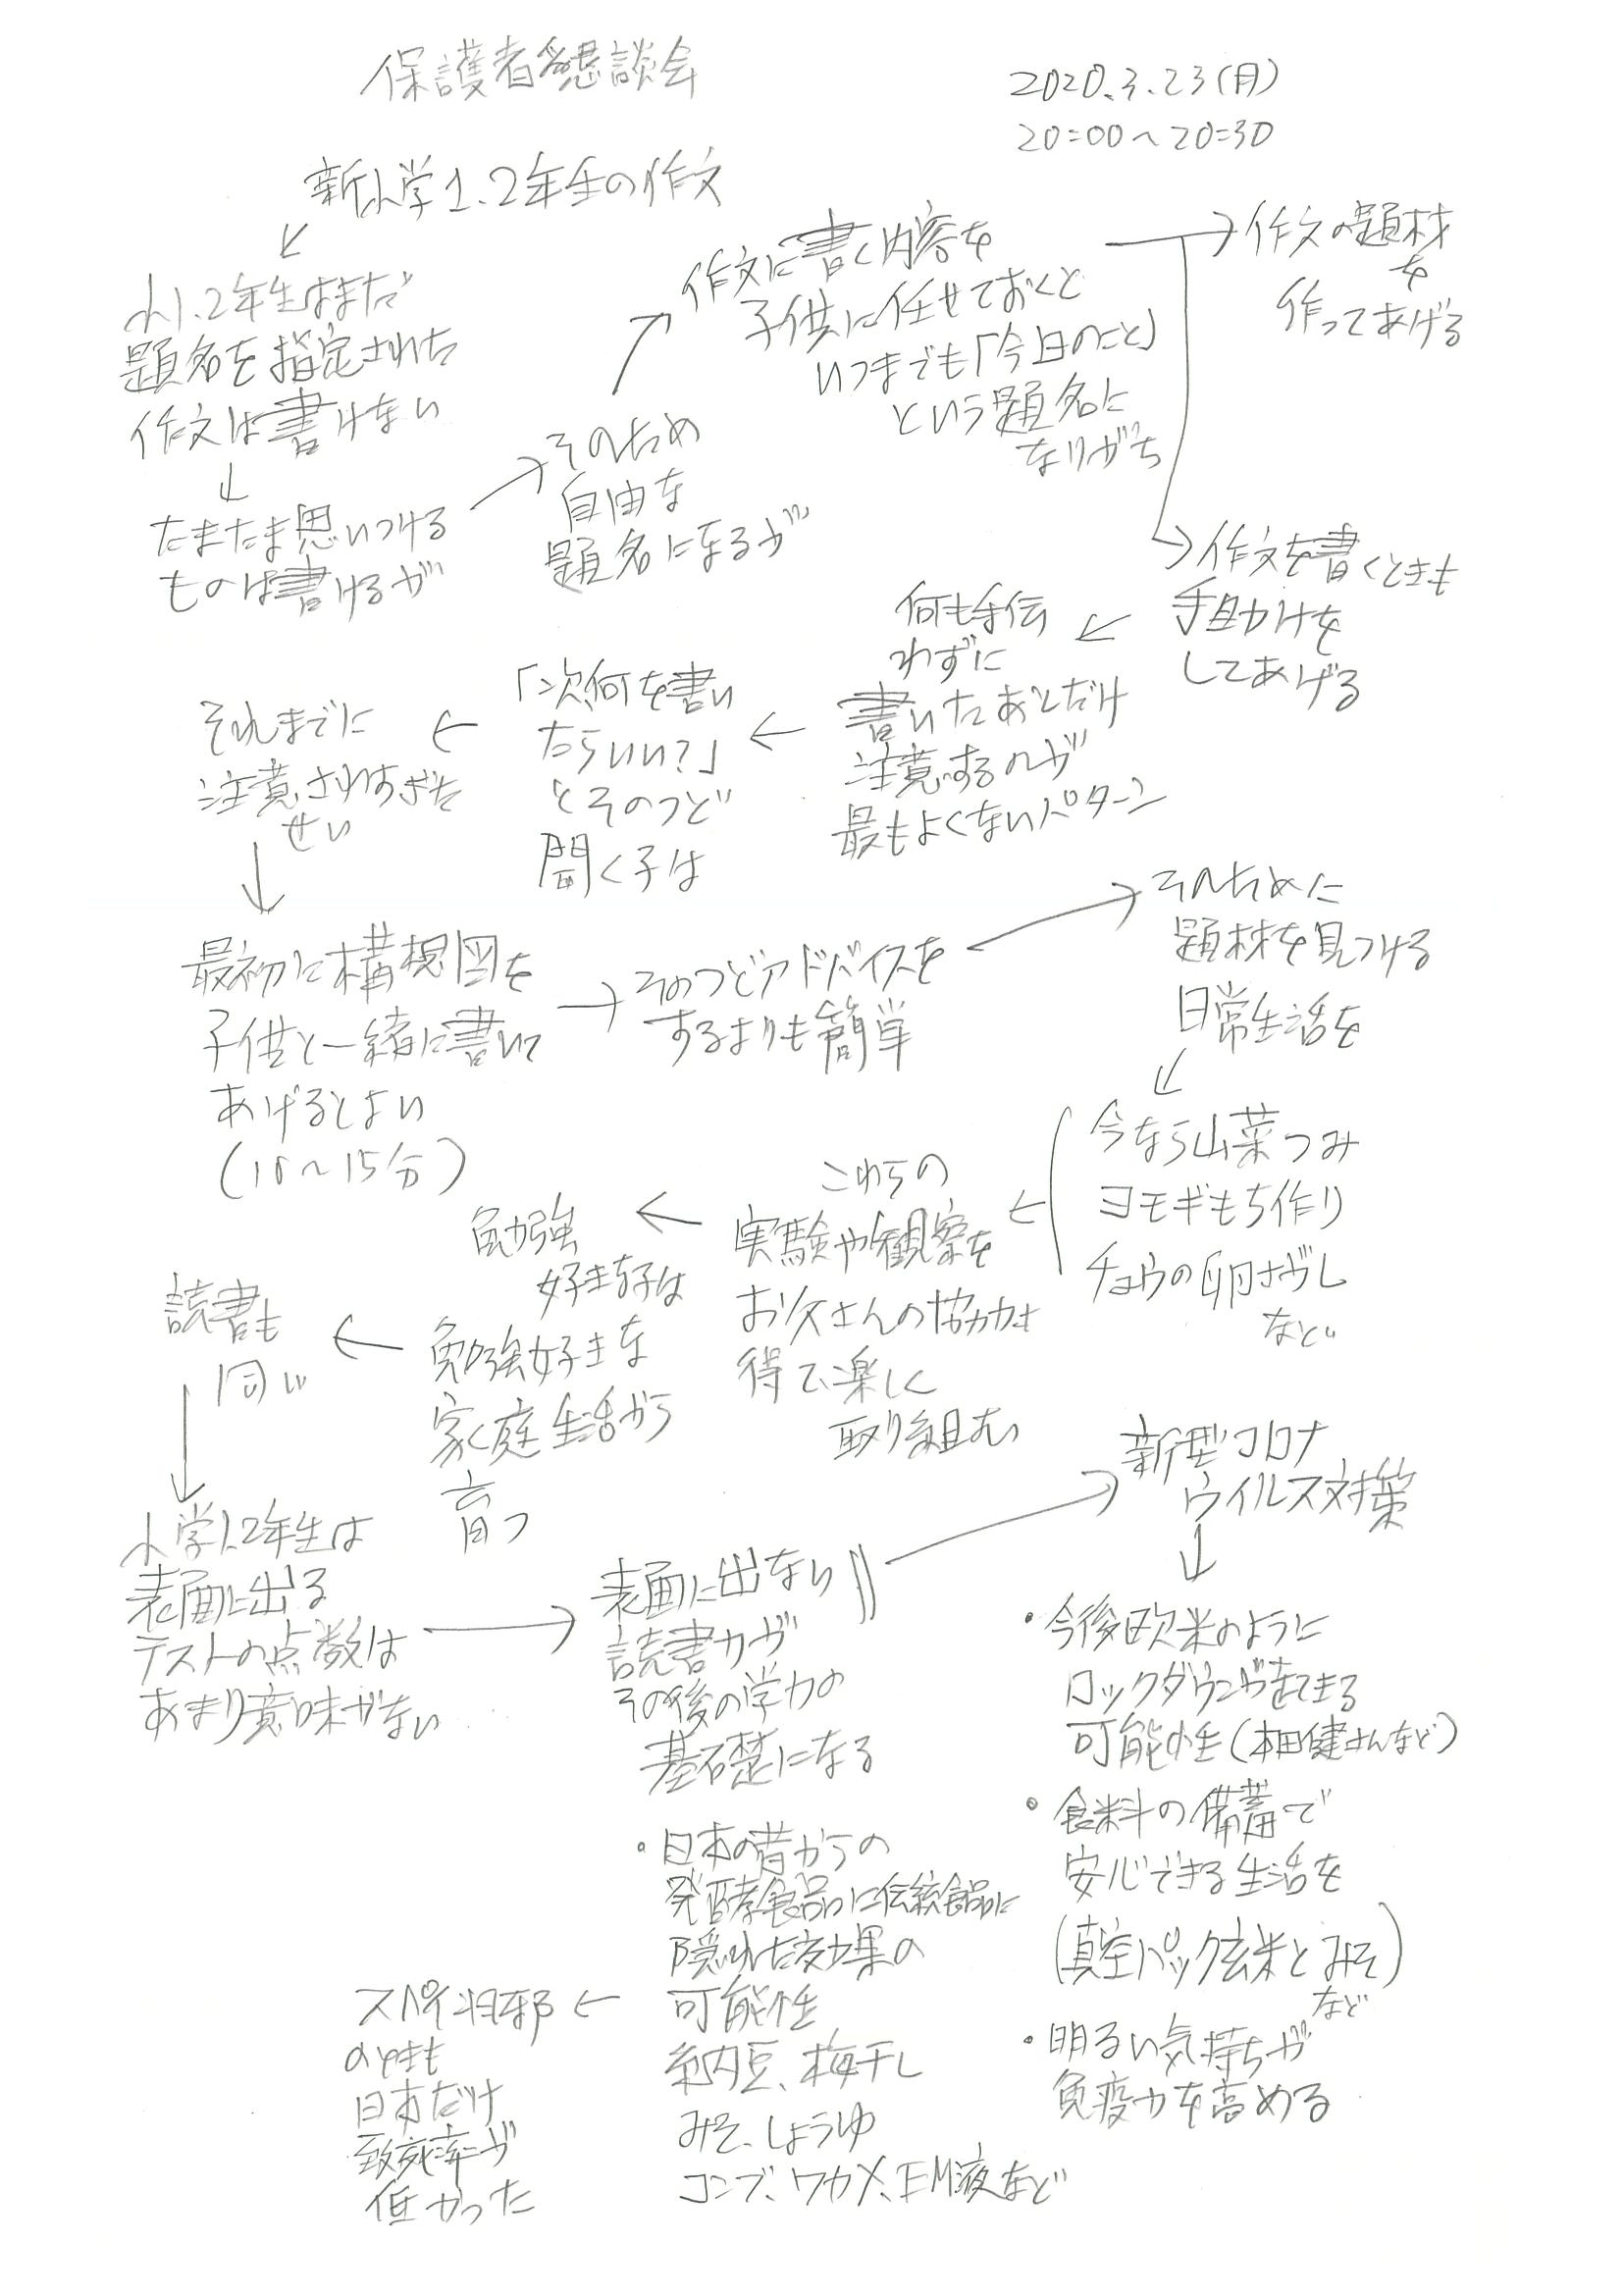 保護者懇談会
2020.3.23(月)
20:00〜20:30
新小学1.2年生の作文
小1.2年生はまだ
題名を指定された
作文は書けない
たまたま思いつける
ものは書けるが
そのため
自由な
題名になるが
作文に書く内容を
子供に任せておくと
いつまでも「今日のこと」
という題名に
なりがち
作文の題材
を
作ってあげる
作文を書くときも
手助けを
してあげる
何も手伝
わずに
書いたあとだけ
注意するのが
最もよくないパターン
「次、何を書い
たらいい?」
とそのつど
聞く子は
それまでに
注意されすぎた
せい
最初に構想図を
子供と一緒に書いて
あげるとよい
(10〜15分)
そのつどアドバイスを
するよりも簡単
そのために
題材を見つける
日常生活を
今なら山菜つみ
ヨモギもち作り
チョウの卵さがし
など
これらの
実験や観察を
お父さんの協力も
得て、楽しく
取り組む
勉強
好きな子は
勉強好きな
家庭生活から
育つ
読書も
同じ
小学1.2年生は
表面に出る
テストの点数は
あまり意味がない
表面に出ない
読書力が
その後の学力の
基礎になる
新型コロナ
ウイルス対策
・今後欧米のように
ロックダウンがおきる
可能性(本田健さんなど)
・食料の備蓄で
安心できる生活を
(真空パック玄米とみそ)
など
・明るい気持ちが
免疫力を高める
・日本の昔からの
発酵食品に伝統食品に
隠れた効果の
可能性
納豆、梅干し
みそ、しょうゆ
コンブ、ワカメ、EM液など
スペイン風邪
のときも
日本だけ
致死率が
低かった